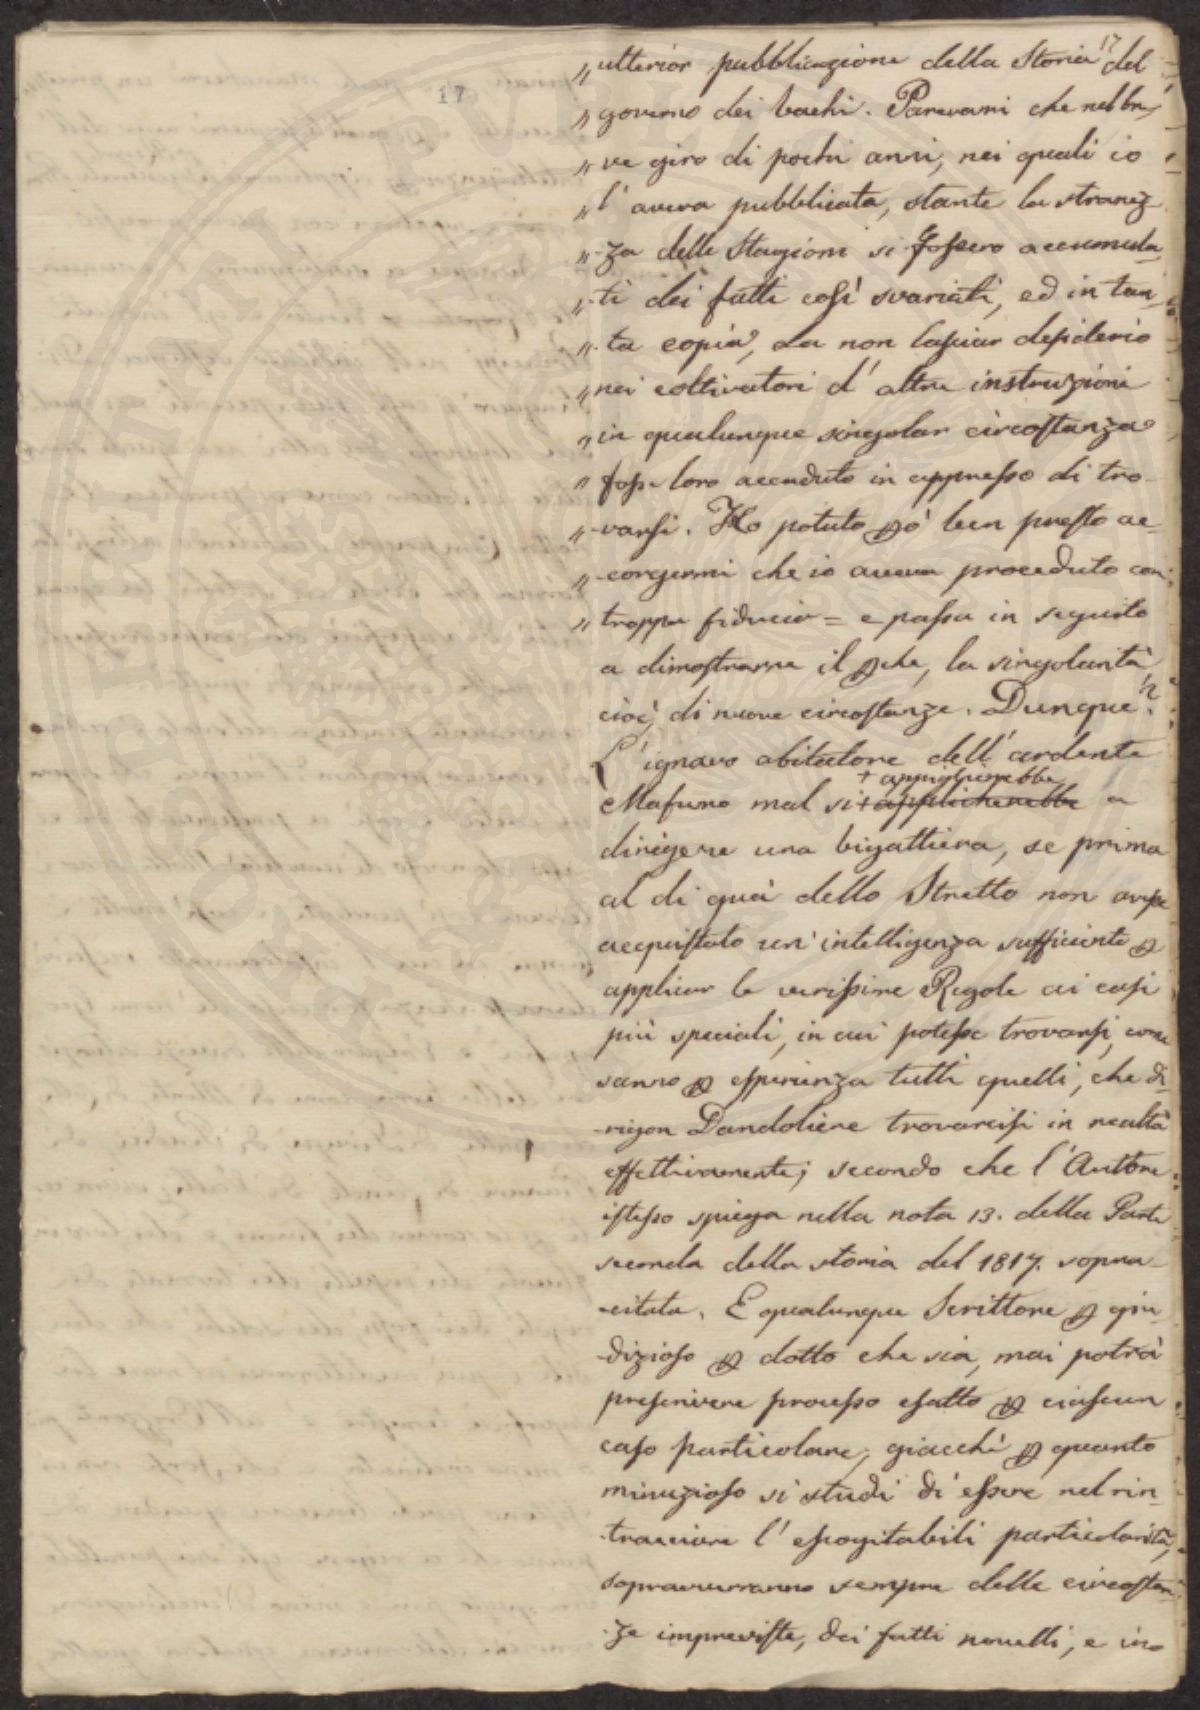 17
17
" ulterior pubblicazione della Storia del
" governo dei bachi. Parevami che nel bre
" ve giro di pochi anni, nei quali io
" l'aveva pubblicata, stante la stranez
" -za delle Stagioni si fossero accumula
" -ti dei fatti così svariati, ed in tan-
" -ta copia, da non lasciar desiderio
" nei coltivatori d'altre instruzioni
" in qualunque singolar circostanza
" fosse loro accaduto in appresso di tro-
" -varsi. Ho potuto però ben presto ac-
" -corgermi che io aveva proceduto con
" troppa fiducia = e passa in seguito
a dimostrarne il perchè, la singolarità
cioè, di nuove circostanze. Dunque?
L'ignavo abitatore dell'ardente
+ appiglierebbe
Mafuno mal si + applicherebbe a
dirigere una bigattiera, se prima
al di quà dello Stretto non avesse
acquistato un'intelligenza sufficiente per
applicar le verissime Regole ai casi
più speciali, in cui potesse trovarsi, come
sanno per esperienza tutti quelli, che di-
-rigon Dandoliere trovarcisi in realtà
effettivamente; secondo che l'Autore
istesso spiega nella nota 13. della Parte
seconda della storia del 1817. sopra-
-citata. E qualunque Scrittore per giu-
-dizioso per dotto che sia, mai potrà
prescrivere processo esatto per ciascun
caso particolare; giacchè per quanto
minuzioso si studi di essere nel rin-
-tracciare l'escogitabili particolarità,
sopravverranno sempre delle circostan
-ze impreviste, dei fatti novelli, e ino